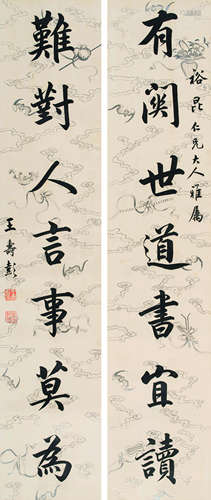 有関世道書宜讀
裕昆仁兄大人雅屬
難對人言事莫為
王壽彭